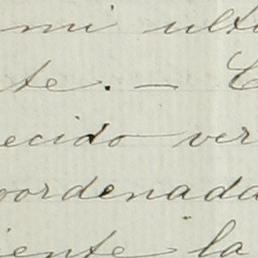 mi ulti
te. — C
ecido ver
oordenada
iente la